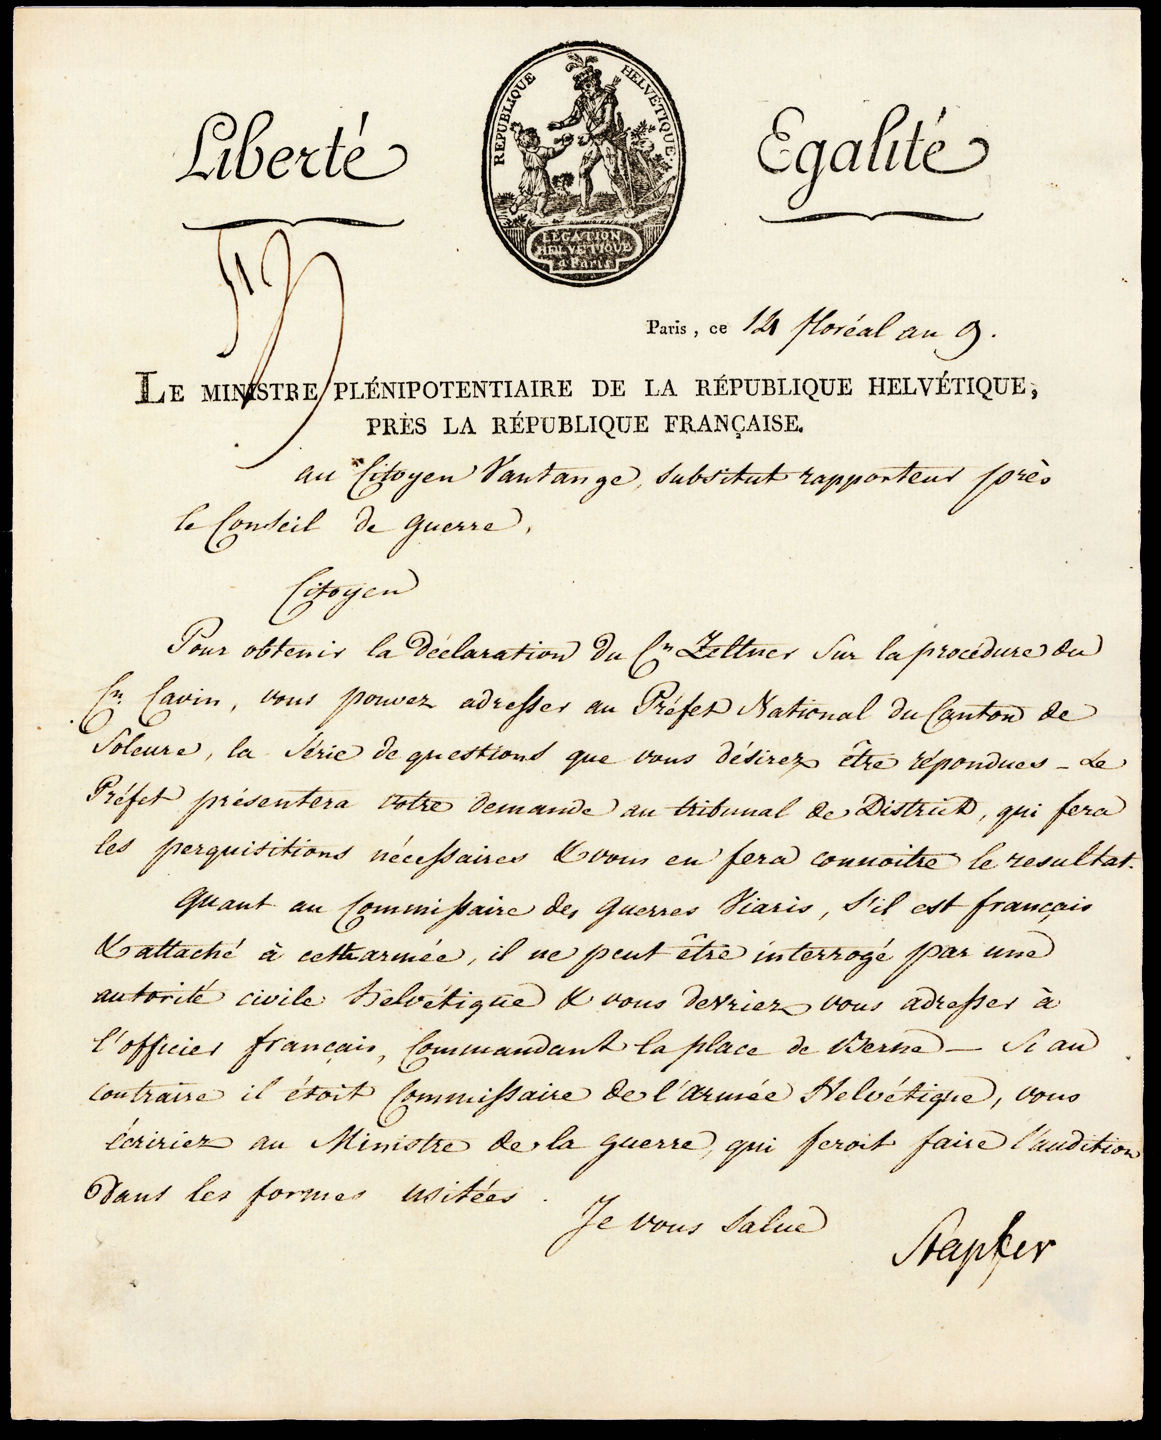 Liberté
Egalité
REPUBLIQUE HELVÉTIQUE.
LEGATION
HELVETIQUE
à Paris
Paris, ce 14 floréal an 9.
LE MINISTRE PLÉNIPOTENTIAIRE DE LA RÉPUBLIQUE HELVÉTIQUE,
PRÈS LA RÉPUBLIQUE FRANÇAISE.
au Citoyen Vautange, substitut rapporteur près
le Conseil de guerre.
Citoyen
Pour obtenir la déclaration du Cn Zeltner sur la procédure du
Cn. Cavin, vous pouvez adresser au Préfet National du Canton de
Soleure, la série de questions que vous désirez être répondues - Le
Préfet présentera votre demande au tribunal de District, qui fera
les perquisitions nécessaires & vous en fera connoître le resultat.
Quant au Commissaire des guerres Viaris, s'il est français
& attaché à cette armée, il ne peut être interrogé par une
autorité civile helvétique & vous devriez vous adresser à
l'officier français, Commandant la place de Berne — Si au
contraire il étoit Commissaire de l'armée Helvétique, vous
écririez au Ministre de la guerre, qui feroit faire l'audition
dans les formes usitées.
Je vous salue
Stapfer